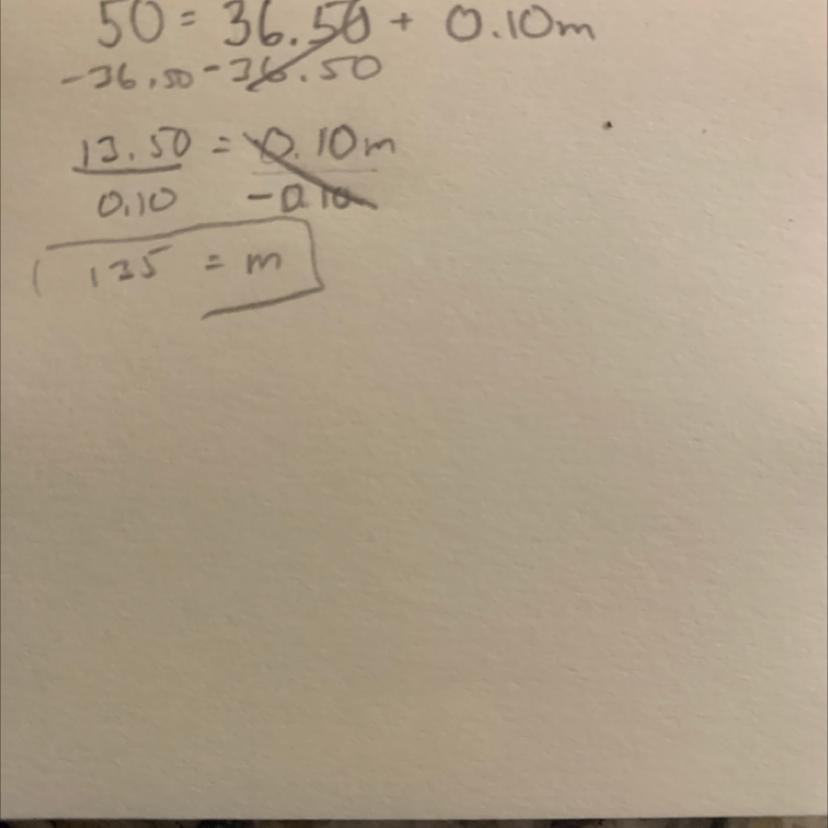 50 = 36.50 + 0.10m
-36.50 -36.50
13.50 = 0.10m
0.10 -0.10
135 = m